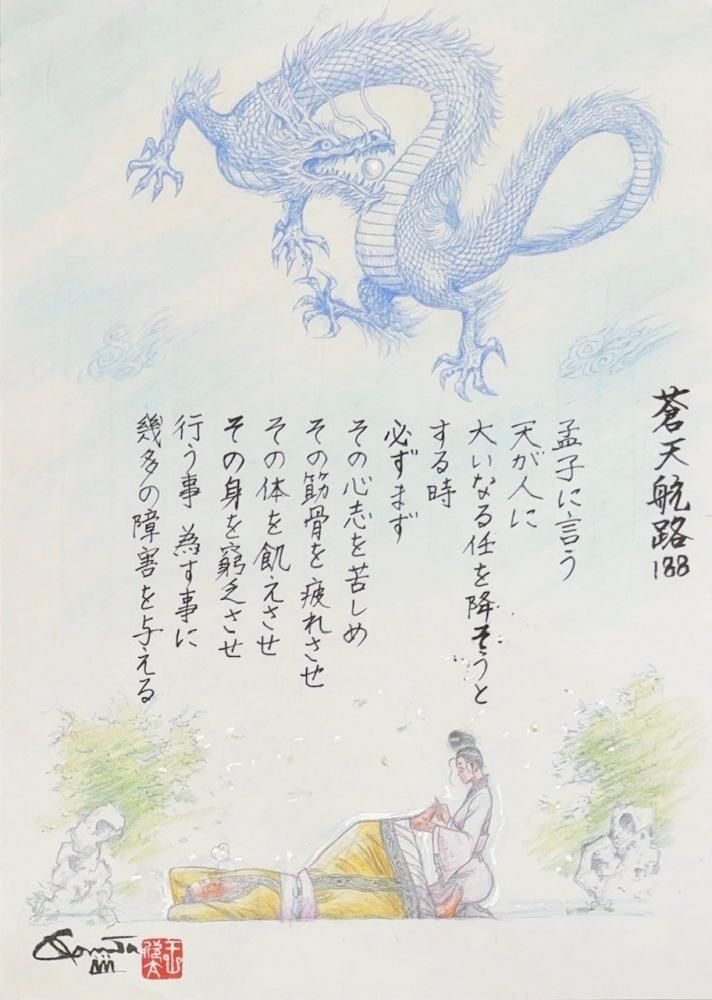 蒼天航路188
孟子に言う
天が人に
大いなる任を降そうと
する時
必ずまず
その心志を苦しめ
その筋骨を疲れさせ
その体を飢えさせ
その身を窮乏させ
行う事 為す事に
幾多の障害を与える